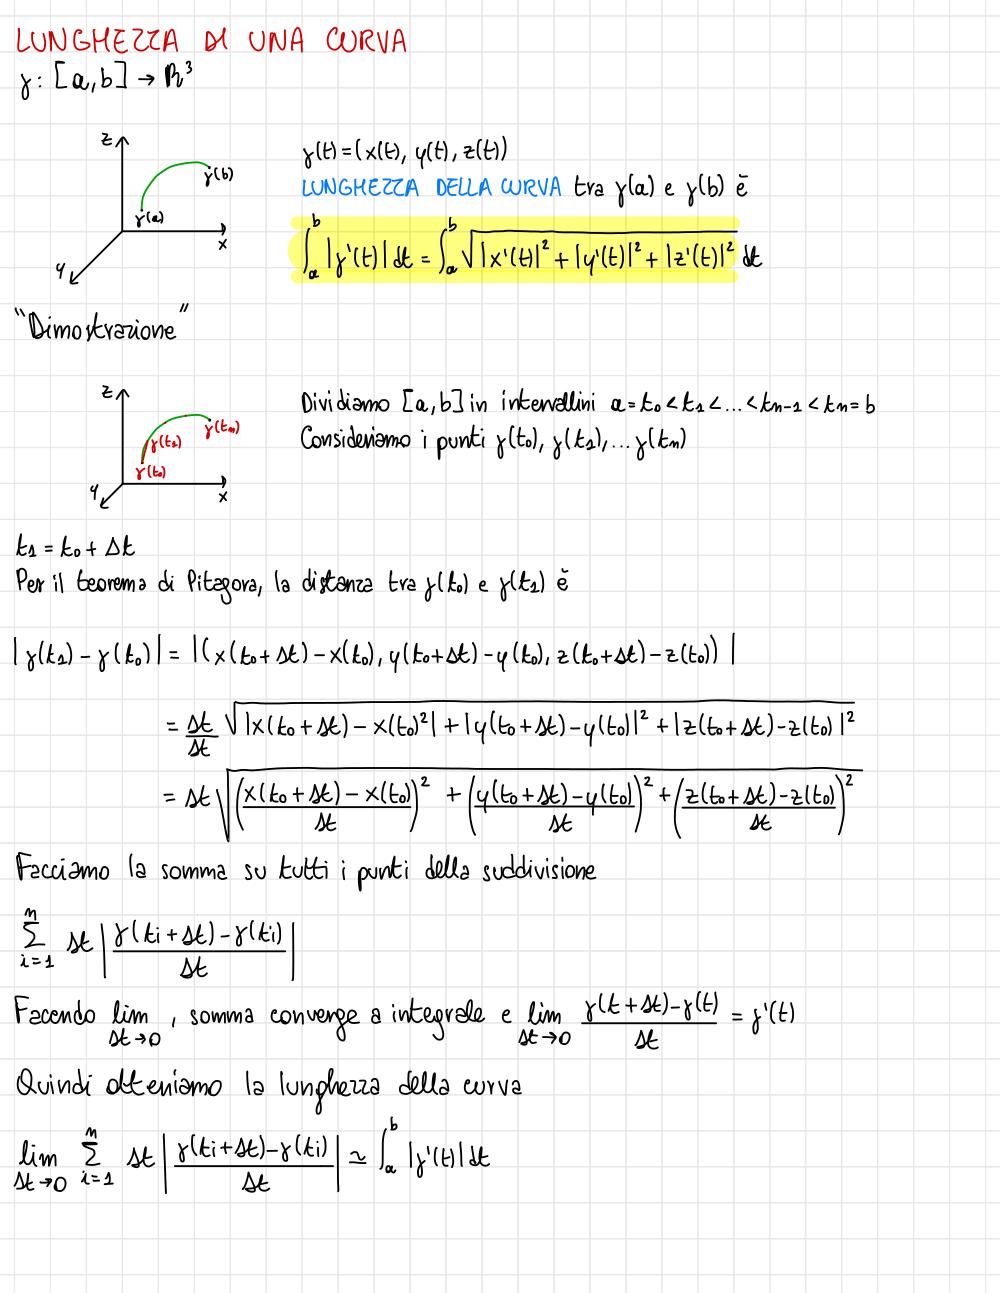 LUNGHEZZA DI UNA CURVA
γ: [a,b] → ℝ³
z
γ(b)
γ(a)
x
y
γ(t) = (x(t), y(t), z(t))
LUNGHEZZA DELLA CURVA tra γ(a) e γ(b) è
∫_a^b |γ'(t)| dt = ∫_a^b √(|x'(t)|² + |y'(t)|² + |z'(t)|²) dt
"Dimostrazione"
z
γ(tn)
γ(t1)
γ(t0)
x
y
Dividiamo [a,b] in intervallini a = t0 < t1 < ... < tn-1 < tn = b
Consideriamo i punti γ(t0), γ(t1), ... γ(tn)
t1 = t0 + Δt
Per il teorema di Pitagora, la distanza tra γ(t0) e γ(t1) è
|γ(t1) - γ(t0)| = |(x(t0+Δt) - x(t0), y(t0+Δt) - y(t0), z(t0+Δt) - z(t0))|
= Δt/Δt √(|x(t0+Δt) - x(t0)²| + |y(t0+Δt) - y(t0)|² + |z(t0+Δt) - z(t0)|²)
= Δt √(((x(t0+Δt) - x(t0))/Δt)² + ((y(t0+Δt) - y(t0))/Δt)² + ((z(t0+Δt) - z(t0))/Δt)²)
Facciamo la somma su tutti i punti della suddivisione
∑_{i=1}^n Δt |(γ(ti+Δt) - γ(ti))/Δt|
Facendo lim_{Δt→0}, somma converge a integrale e lim_{Δt→0} (γ(t+Δt) - γ(t))/Δt = γ'(t)
Quindi otteniamo la lunghezza della curva
lim_{Δt→0} ∑_{i=1}^n Δt |(γ(ti+Δt) - γ(ti))/Δt| ≃ ∫_a^b |γ'(t)| dt